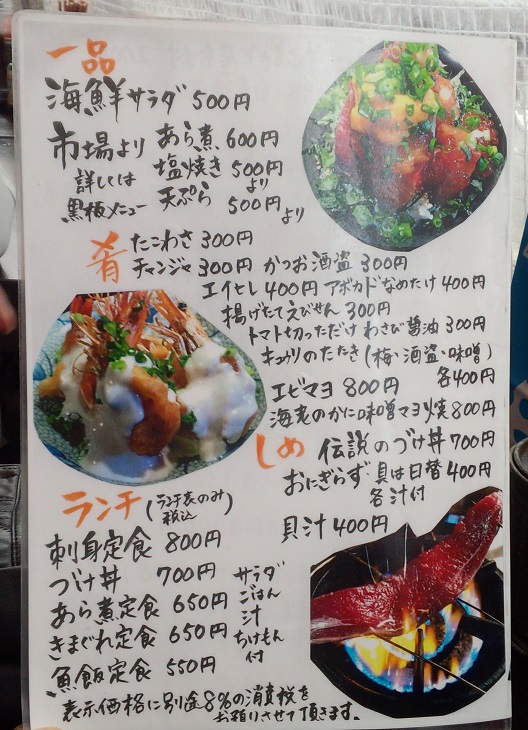 一品
海鮮サラダ 500円
市場より あら煮 600円
詳しくは 塩焼き 500円より
黒板メニュー 天ぷら 500円より
肴 たこわさ 300円
チャンジャ 300円 かつお酒盗 300円
エイヒレ 400円 アボカドなめたけ 400円
揚げたてえびせん 300円
トマト切っただけ わさび醤油 300円
キュウリのたたき (梅・酒盗・味噌)
各400円
エビマヨ 800円
海老のかに味噌マヨ焼 800円
しめ 伝説のづけ丼 700円
おにぎらず 具は日替 400円
各汁付
貝汁 400円
ランチ (ランチ表のみ税込)
刺身定食 800円
づけ丼 700円
あら煮定食 650円
きまぐれ定食 650円
魚飯定食 550円
サラダ
ごはん
汁
つけもん
付
表示価格に別途8%の消費税を
お預りさせて頂きます。